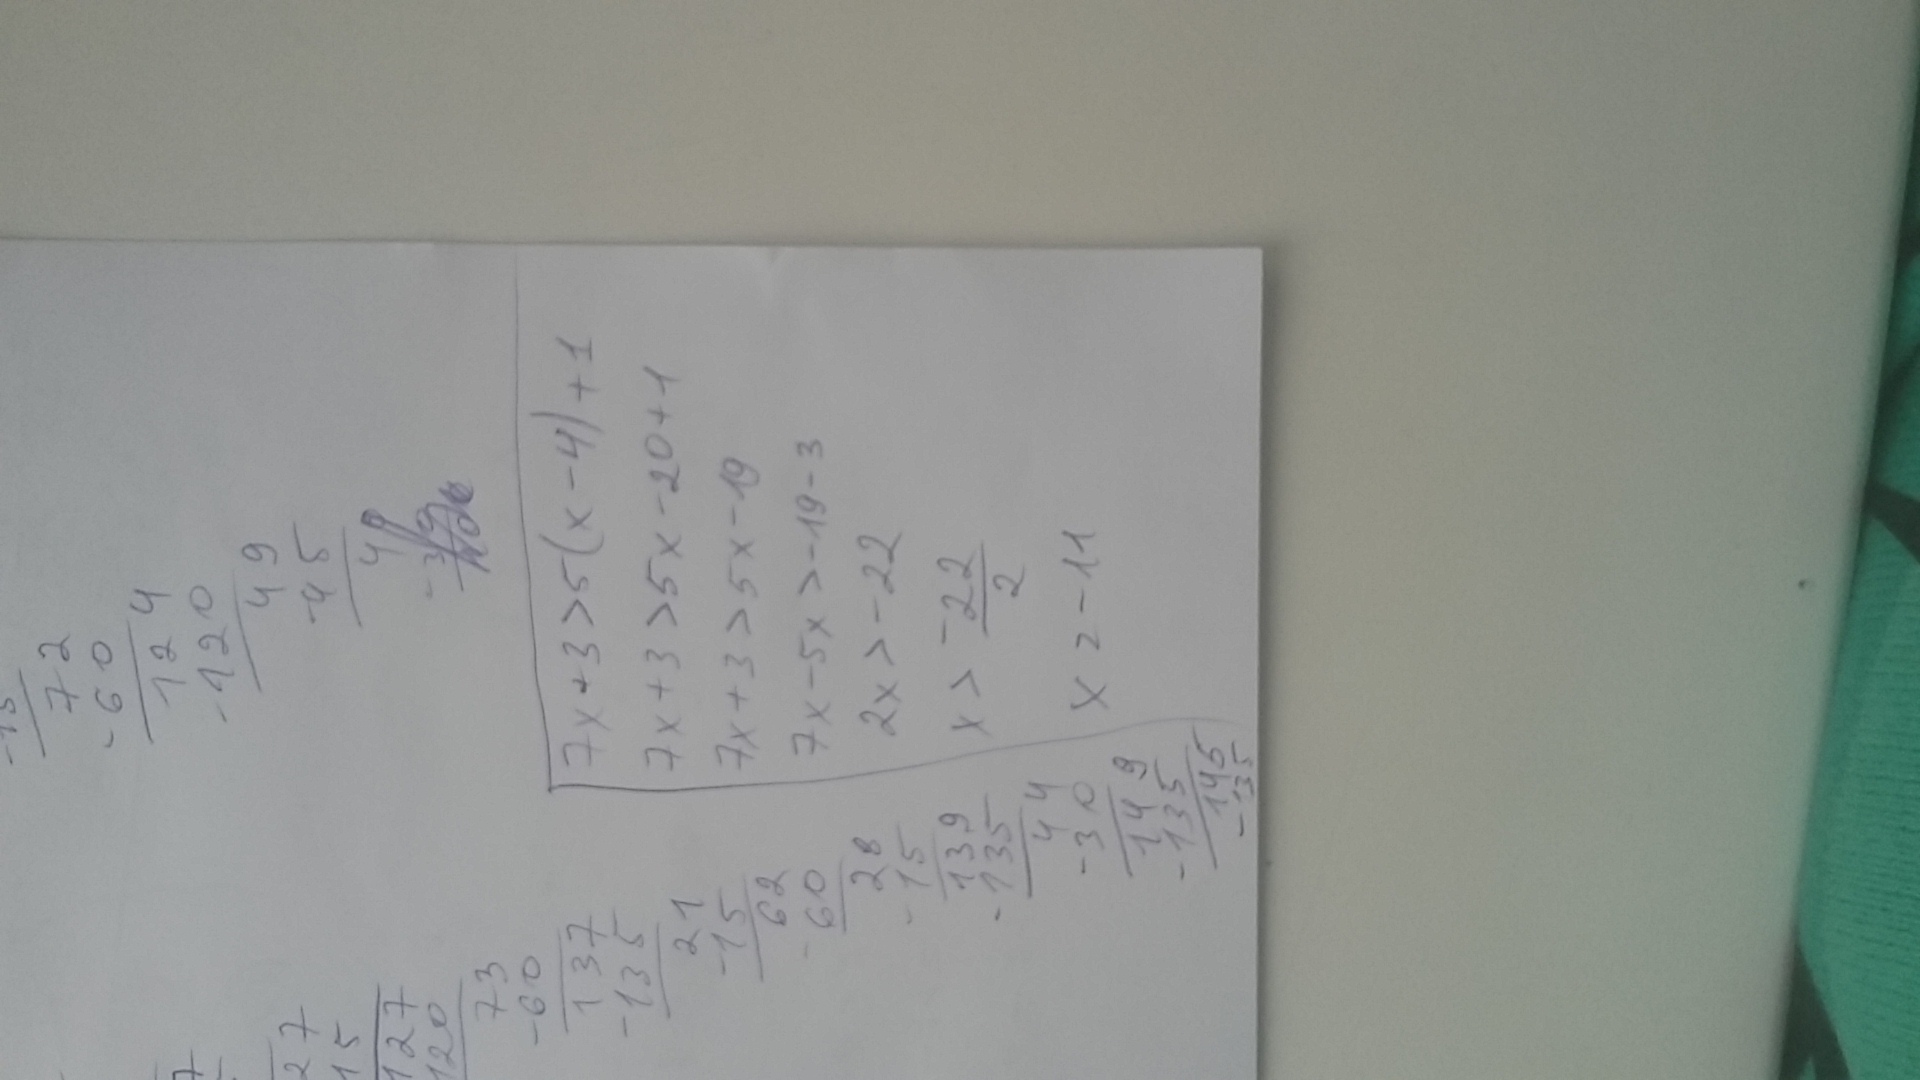 72
-60
124
-120
49
-45
4
7x+3>5(x-4)+1
7x+3>5x-20+1
7x+3>5x-19
7x-5x>-19-3
2x>-22
x>-22/2
x=-11
27
15
127
120
73
-60
137
-135
21
-15
62
-60
28
-15
139
-135
44
-30
149
-135
145
-135